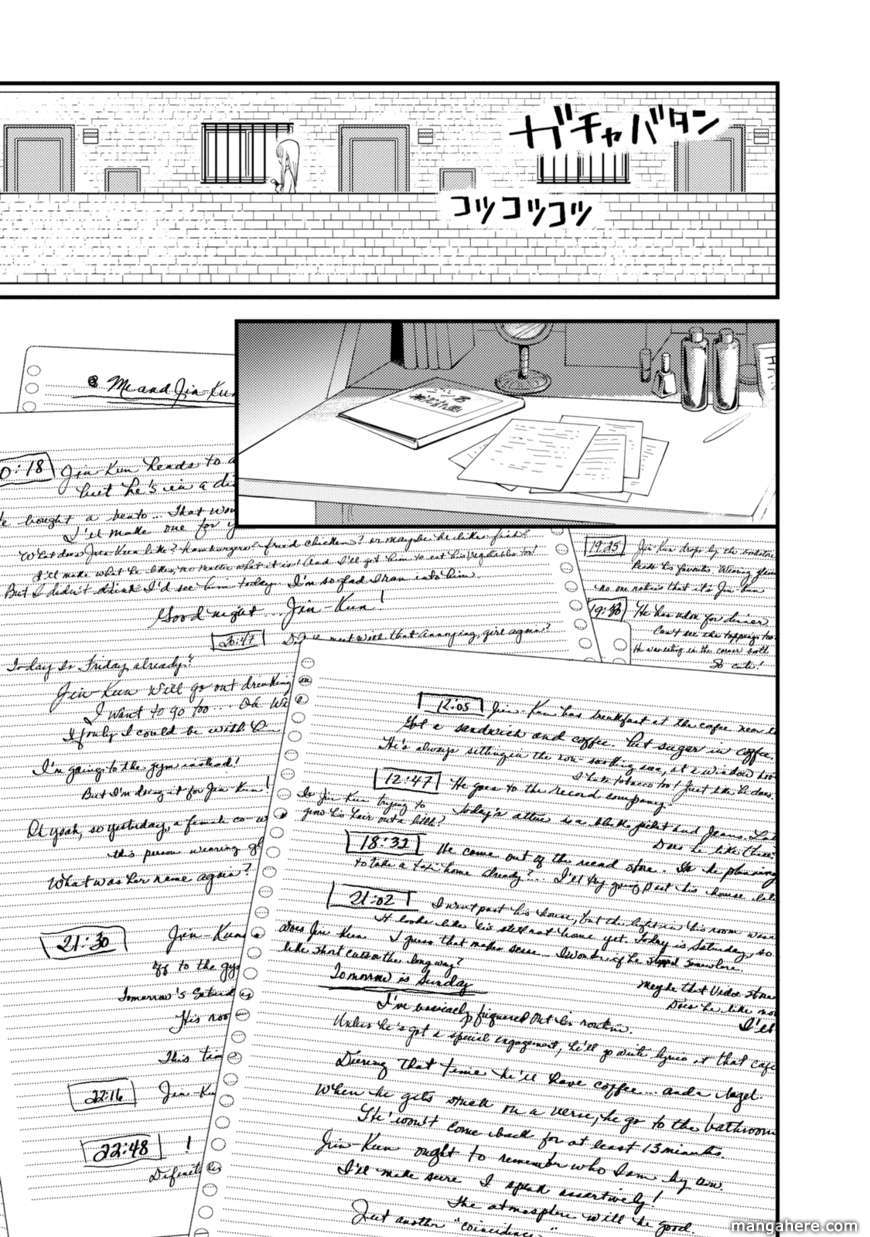 ガチャ バタン
コツ コツ コツ
Me and Jin-Kun
0:18 Jin-Kun heads to a
but he's in a di
e bought a bento... That wo
I'll make one for y
What does Jin-Kun like? Hamburgers? fried chicken? or maybe he likes fish?
I'll make what he likes, no matter what it is! And I'll get him to eat his vegetables too!
But I didn't think I'd see him today. I'm so glad I ran into him.
Good night... Jin-Kun!
that annoying girl again?
Today is Friday already?
Jin-Kun will go out drinking
I want to go too... Oh
If only I could be with
I'm going to the gym instead!
But I'm doing it for Jin-Kun!
Oh yeah, so yesterday, a female co-w
this person wearing gl
What was her name again?
21:30 Jin-Kun
to the gy
Tomorrow's Saturd
His roo
This tim
22:16 Jin-Ku
22:48 !
Definit
19:25 Jin-Kun drops by the
Reads his favorite
no one notices that it's Jin-Kun
He has udon for dinner
Can't see the toppings too
He was eating in the corner
So cute!
12:05 Jin-Kun has breakfast at the cafe near
Got a sandwich and coffee. Put sugar in coffee.
He's always sitting in the non-smoking area, at a window
I hate tobacco too! Just like he does.
12:47 He goes to the record company.
Is Jin-Kun trying to
grow his hair out a little?
Today's attire is a jacket and Jeans.
Does he like these
18:32 He come out of the record store. Is he planning
to take a taxi home already?... I'll try going past his house
21:02 I went past his house, but the light in his room
It looks like he's still not home yet. Today is Saturday, so
does Jin-Kun
like short cuts or the long way?
I guess that makes sense... I wonder if he stopped somewhere.
maybe that Video store
Does he like mo
I'll
Tomorrow is Sunday
I'm basically figured out his routine.
Unless he's got a special engagement, he'll go write lyrics at that cafe
During that time he'll have coffee... and a bagel.
When he gets stuck on a verse, he go to the bathroom
He won't come back for at least 15 minutes.
Jin-Kun ought to remember who I am by now.
I'll make sure I speak assertively!
The atmosphere will be good.
Just another "coincidence"
mangahere.com